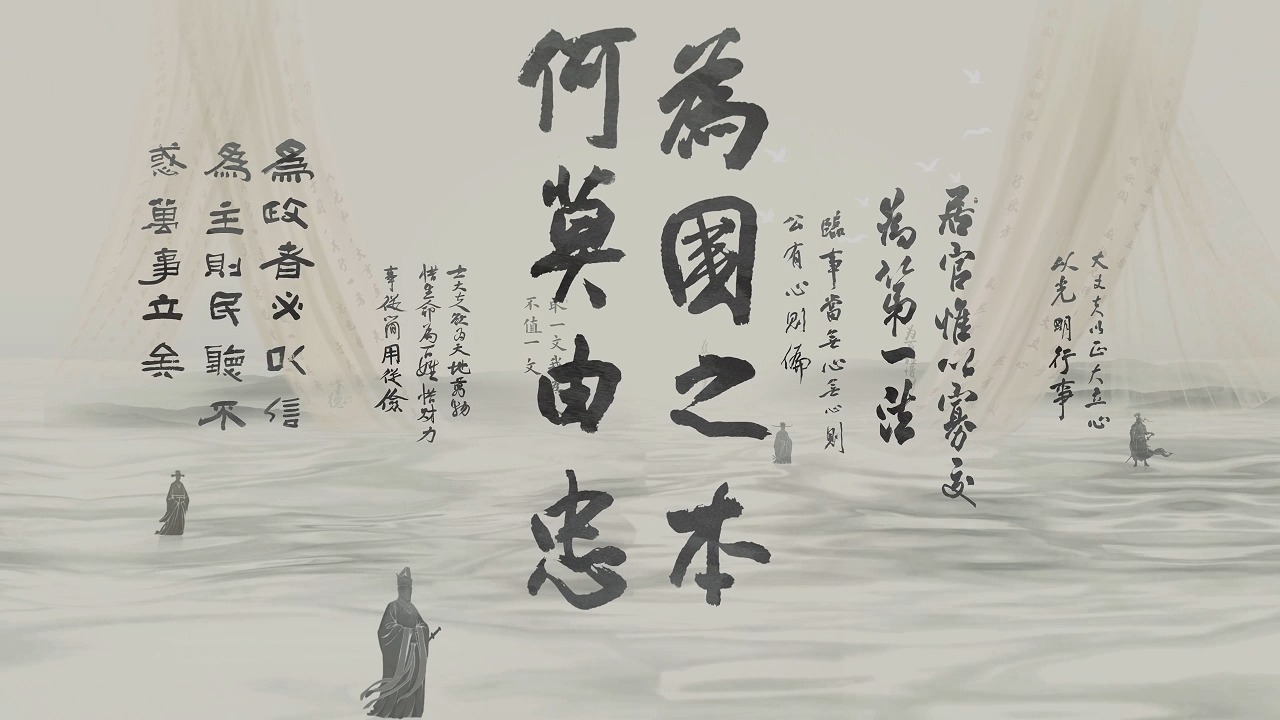 大丈夫以正大立心
以光明行事
居官惟以寡交
為第一法
臨事當無心無心則
公有心則偏
為國之本
何莫由忠
取一文我
不值一文
士大夫欲為天地萬物
惜生命為百姓惜財力
事從简用從儉
爲政者必以信
爲主則民聽不
惑萬事立矣